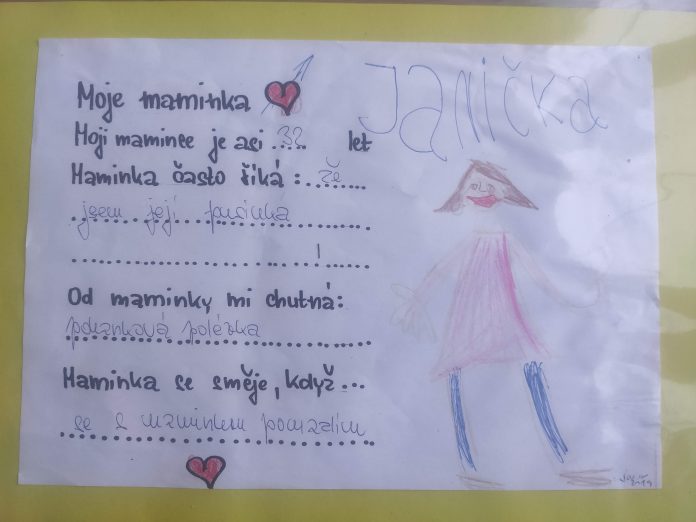 JANIČKA
Moje maminka
Moji mamince je asi 32 let
Maminka často říká: že
jsem její pusinka
!
Od maminky mi chutná:
polévka
Maminka se směje, když...
se s maminkou pomazlím